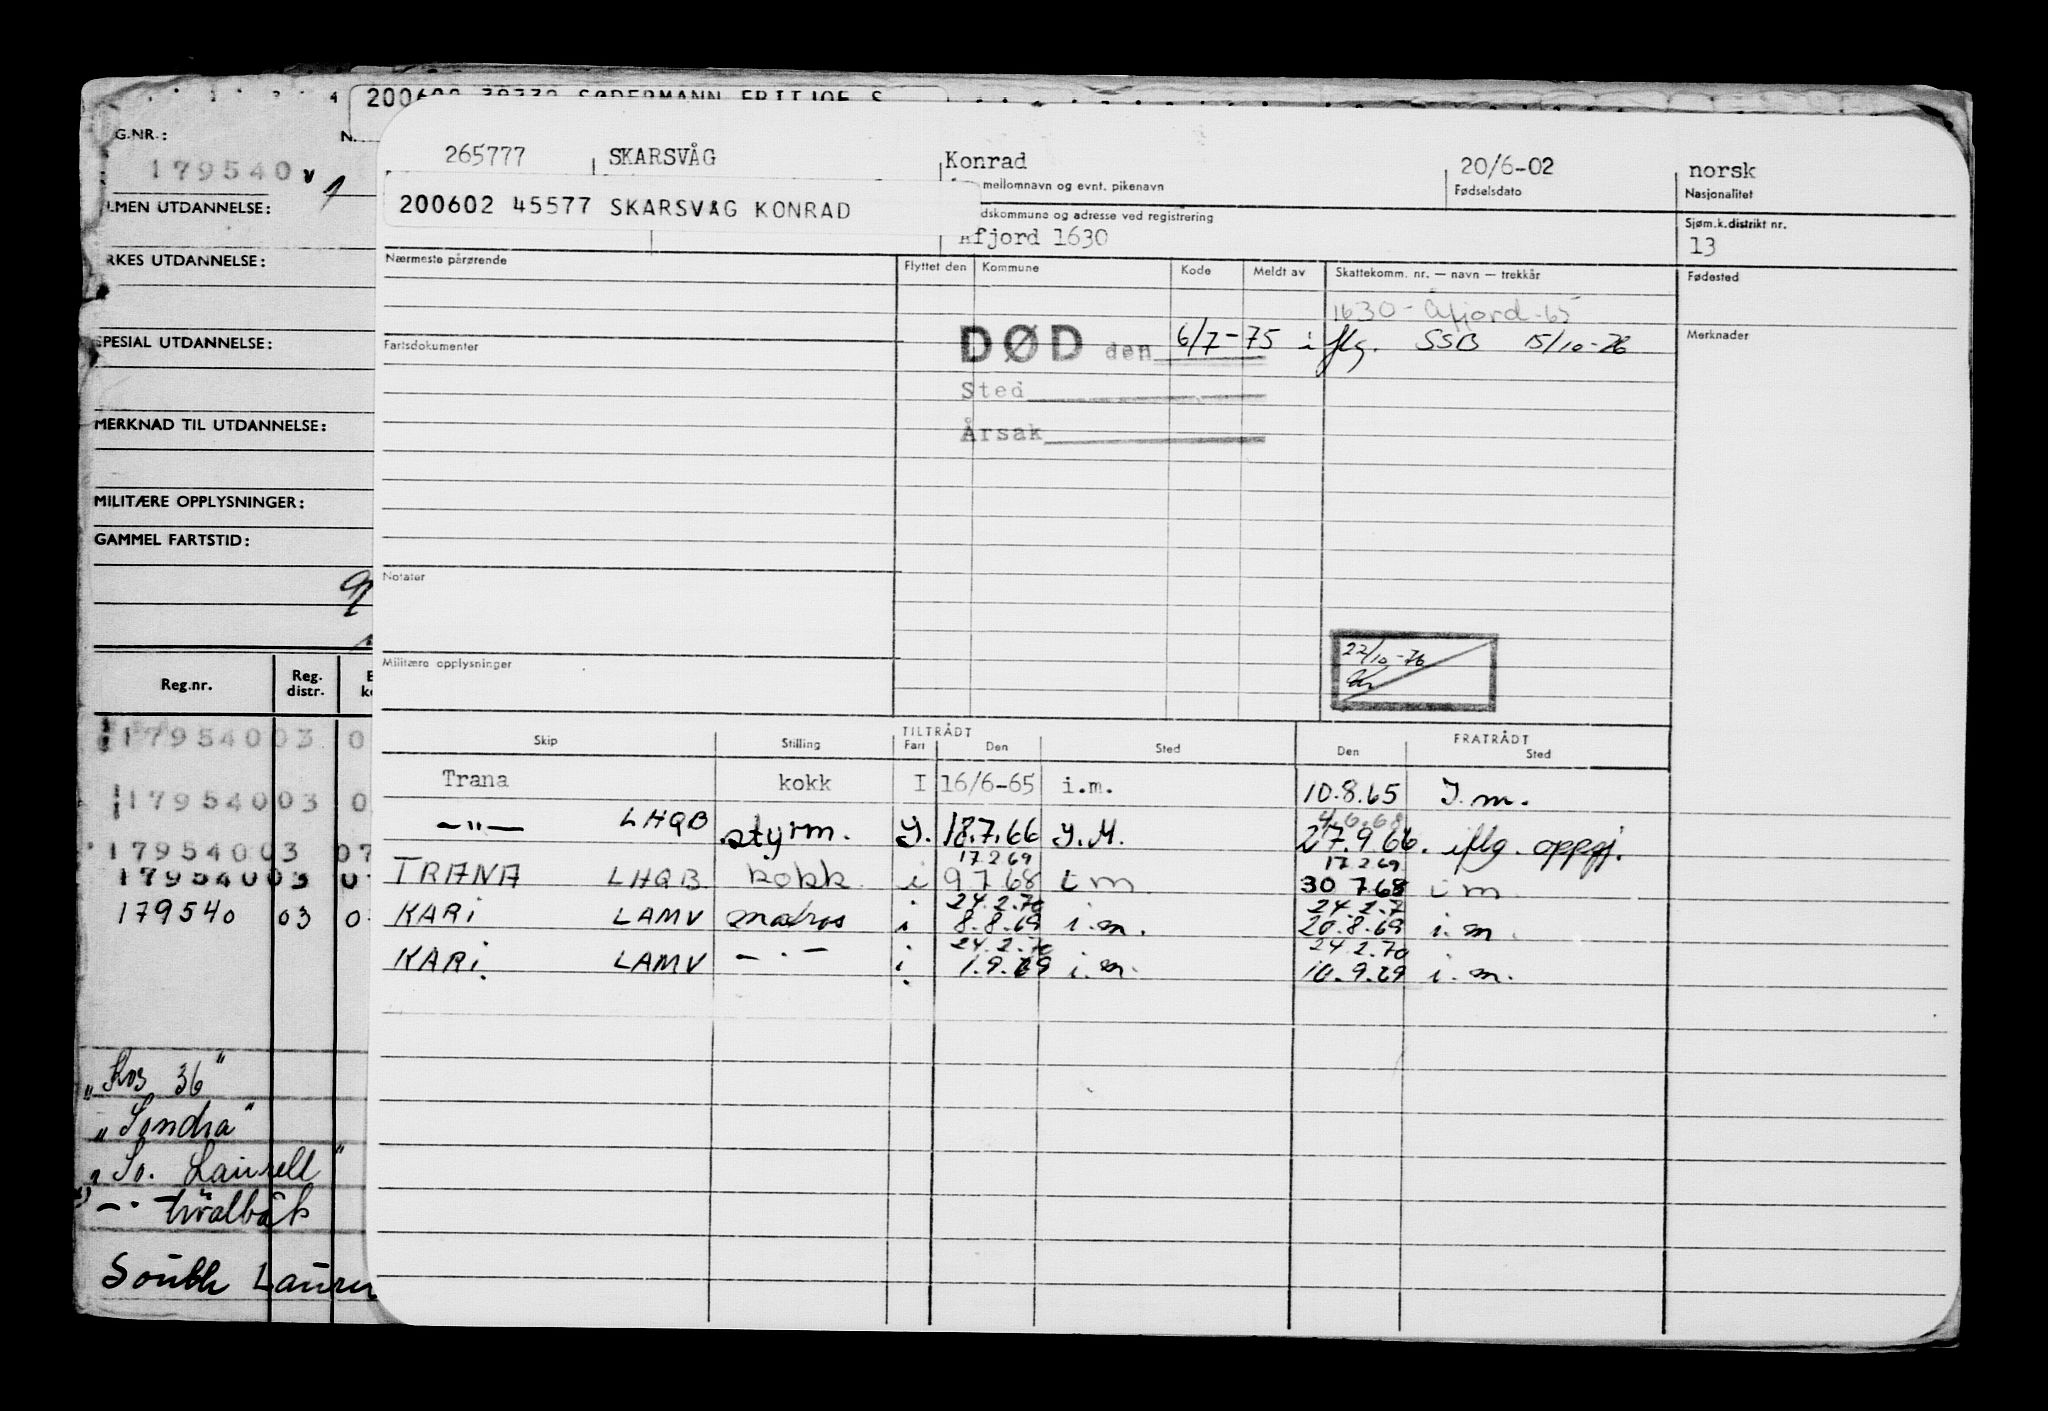 200602 39332 SØDERMANN FRITJOF S
265777 SKARSVÅG Konrad 20/6-02 norsk
mellomnavn og evnt. pikenavn Fødselsdato Nasjonalitet
200602 45577 SKARSVÅG KONRAD
dskommune og adresse ved registrering Sjøm.k.distrikt nr.
Afjord 1630 13
Nærmeste pårørende Flyttet den Kommune Kode Meldt av Skattekomm. nr. — navn — trekkår Fødested
1630 - Åfjord -65
Fartsdokumenter DØD den 6/7-75 i flg. SSB 15/10-76 Merknader
Sted
Årsak
Notater
22/10-76
Militære opplysninger
TILTRÅDT FRATRÅDT
Skip Stilling Fart Den Sted Den Sted
Trana kokk I 16/6-65 i.m. 10.8.65 I.m.
4.6.68
—"— LHQB styrm. I. 18.7.66 I.M. 27.9.66. iflg. oppgj.
17 2 69 17 2 69
TRANA LHQB kokk i 9 7 68 i m 30 7.68 i m
24.2.70 24.2.7
KARi LAMV matros i 8.8.69 i.m. 20.8.69 i.m.
24.2.70 24.2.70
KARi. LAMV — . — i 1.9.69 i.m. 10.9.69 i.m.
G.NR.: N
179540 v
LMEN UTDANNELSE:
RKES UTDANNELSE:
SPESIAL UTDANNELSE:
MERKNAD TIL UTDANNELSE:
MILITÆRE OPPLYSNINGER:
GAMMEL FARTSTID:
Reg.nr. Reg. distr.
179540 03 0
179540 03 0
179540 03 07
179540 03 0
179540 03 0
„Kos 36"
„Sondra"
„So. Laurell"
—·· hvalbåt
South Laure